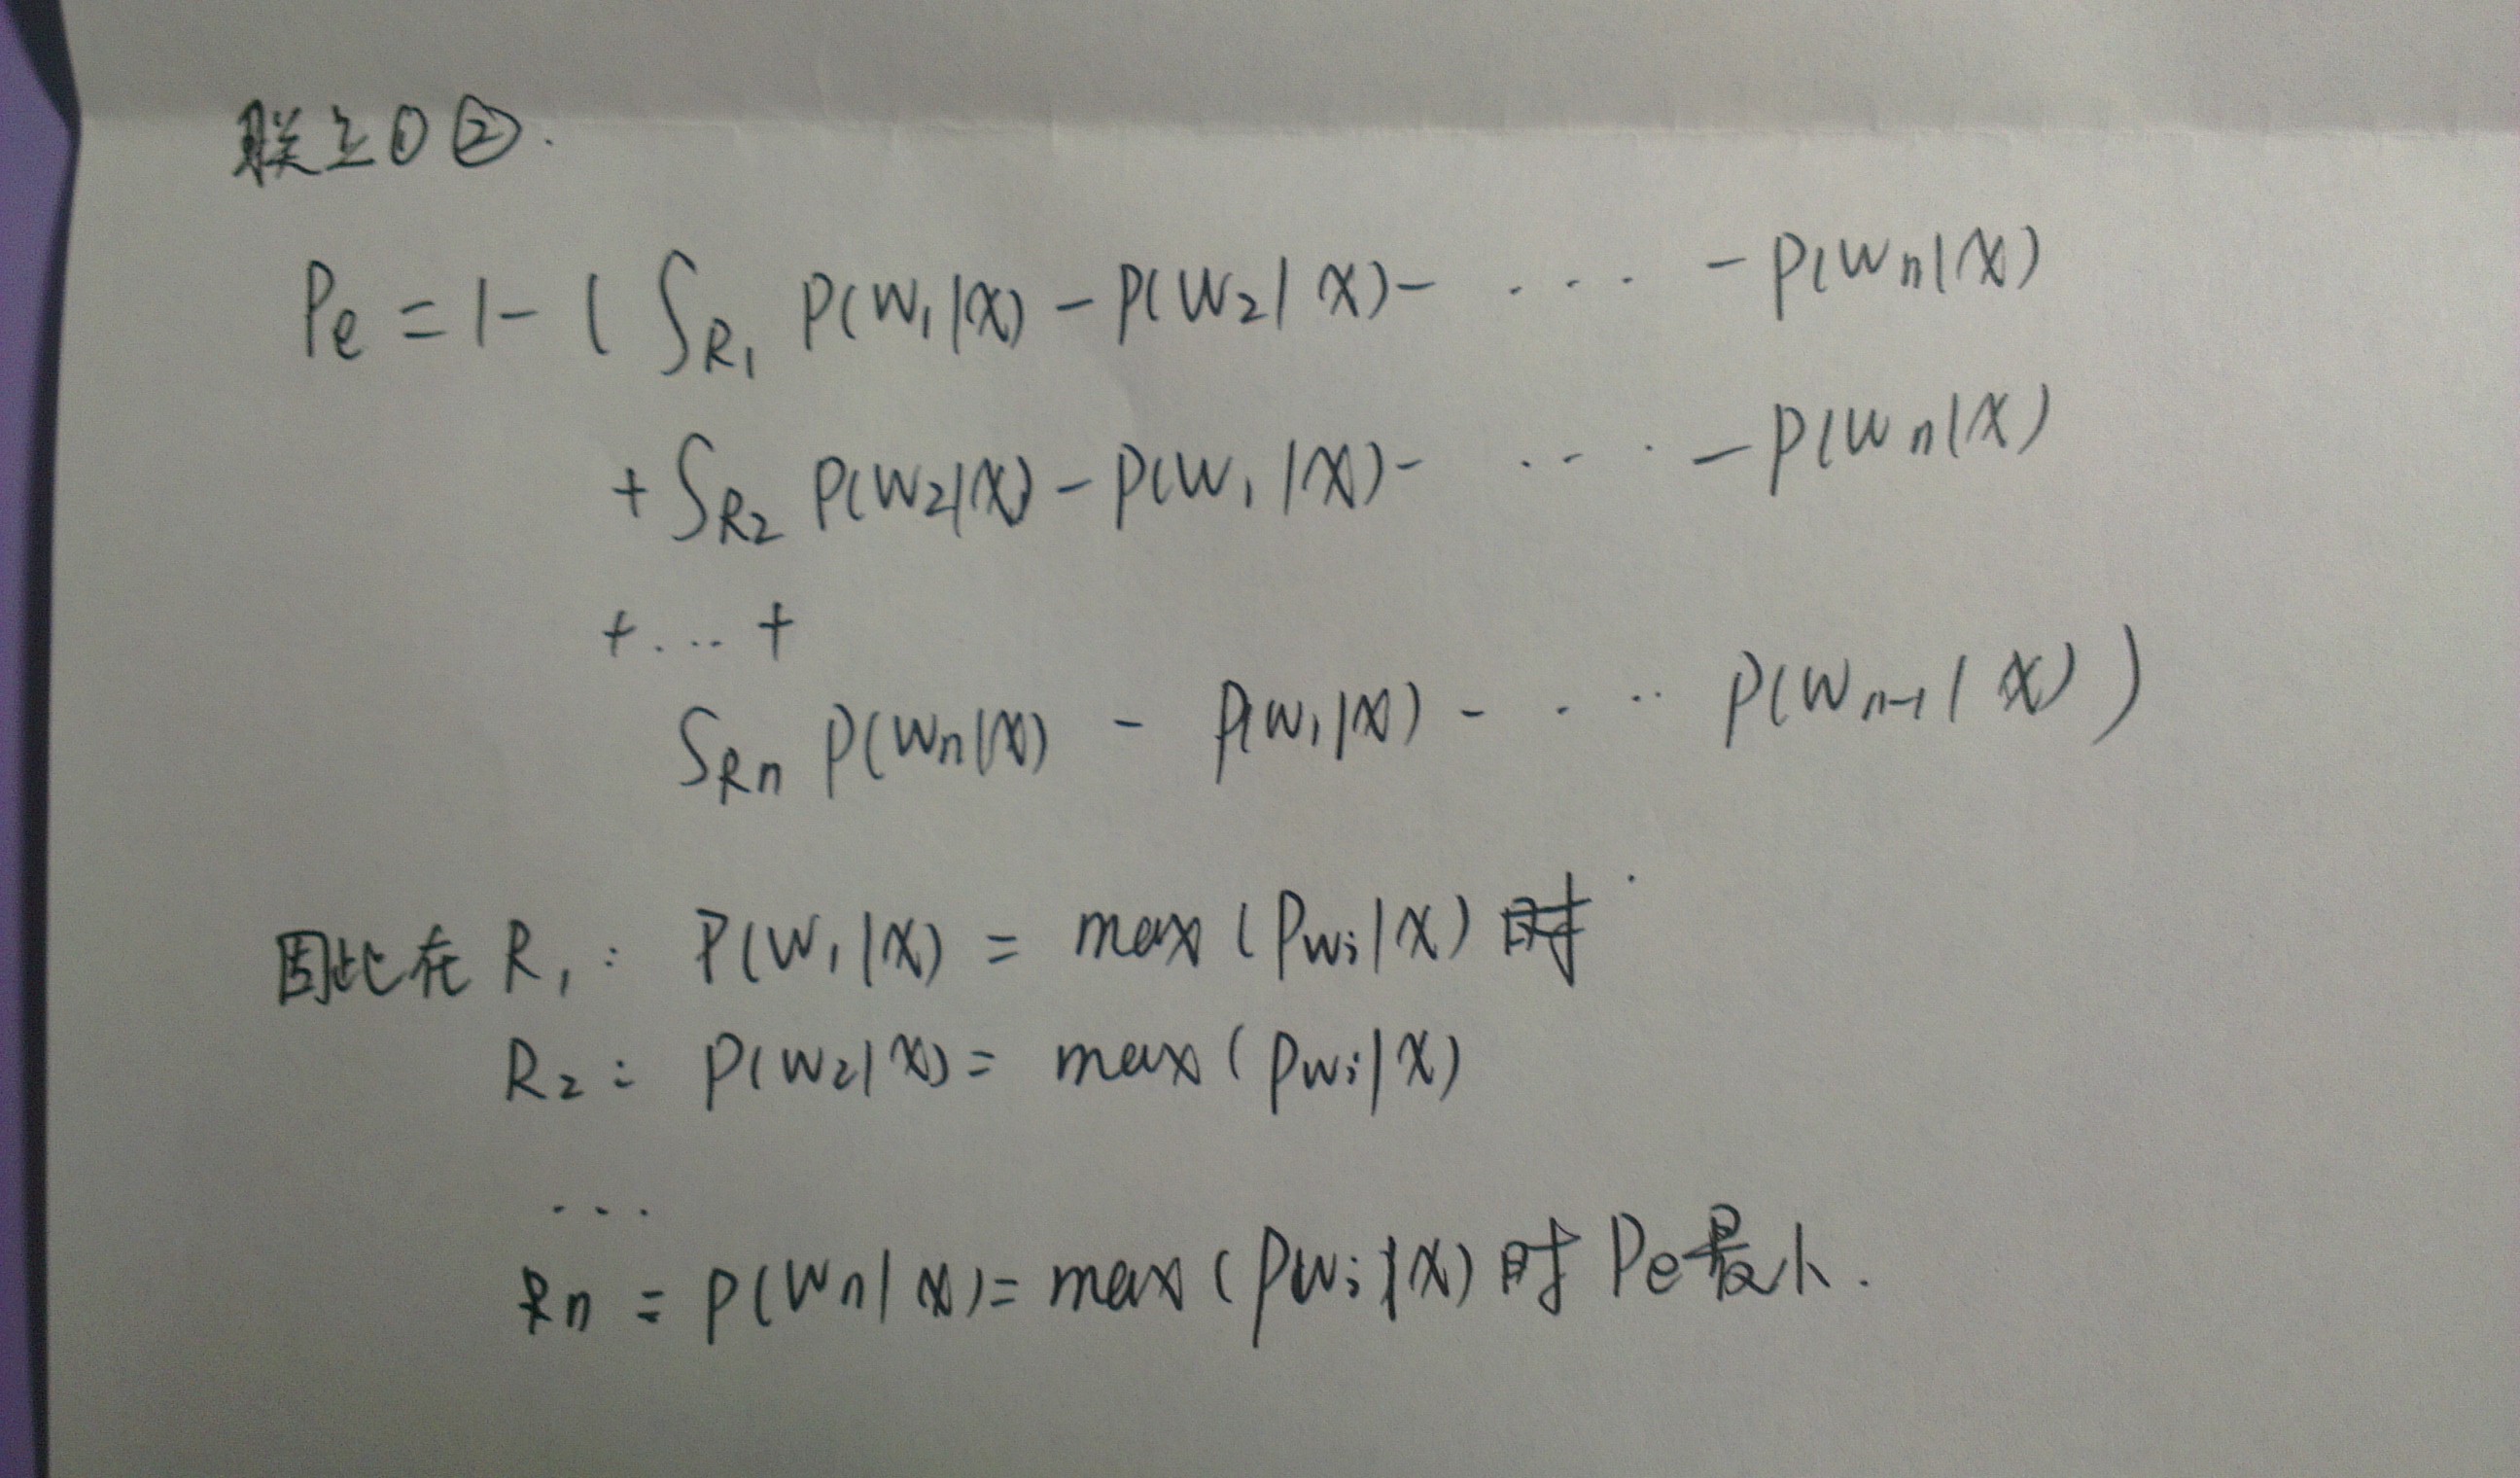 联立①②.
Pe = 1 - ( ∫R₁ P(W₁|X) - P(W₂|X) - .... - P(Wn|X)
+ ∫R₂ P(W₂|X) - P(W₁|X) - .... - P(Wn|X)
+ ... +
∫Rn P(Wn|X) - P(W₁|X) - .... P(Wn-1|X) )
因此在 R₁: P(W₁|X) = max (Pwi|X) 时
R₂: P(W₂|X) = max (Pwi|X)
...
Rn = P(Wn|X) = max (Pwi|X) 时 Pe最小.